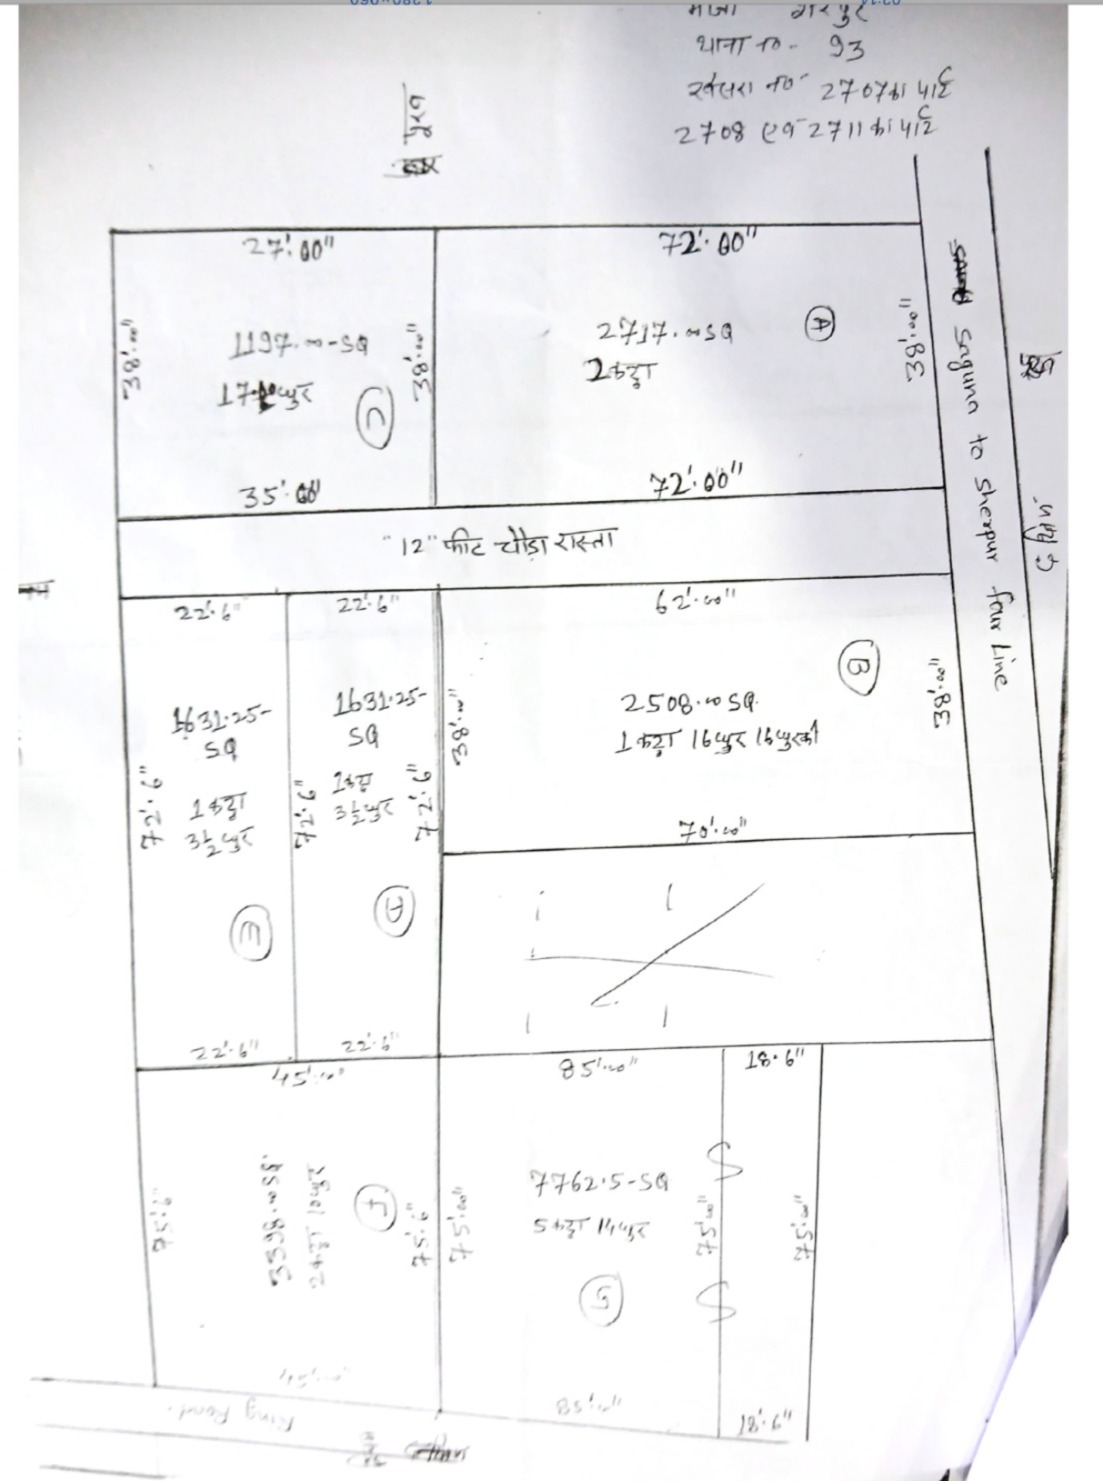 थाना नं०- 93
खेसरा नं० 2707का पार्ट
2708 एवं 2711का पार्ट
पूरब
27'.00"
72'.00"
38'.00"
1197.00-SQ
38'.00"
2717.00SQ
2कट्ठा
A
38'.00"
C
35'.00"
72'.00"
Saguna to Sherpur four Line
"12" फीट चौड़ा रास्ता
22'.6"
22'.6"
62'.00"
B
1631.25-
SQ
1कट्ठा
3½धुर
1631.25-
SQ
1कट्ठा
3½धुर
38'.00"
2508.00SQ.
1कट्ठा 16धुर 16धुरकी
38'.00"
72'.6"
72'.6"
72'.6"
70'.00"
E
D
22'.6"
22'.6"
45'.00"
85'.00"
18'.6"
75'.6"
3398.00SQ.
2कट्ठा 10धुर
F
75'.6"
75'.00"
7762.5-SQ
5कट्ठा 14धुर
G
75'.00"
75'.00"
85'.00"
18'.6"
Ring Road.